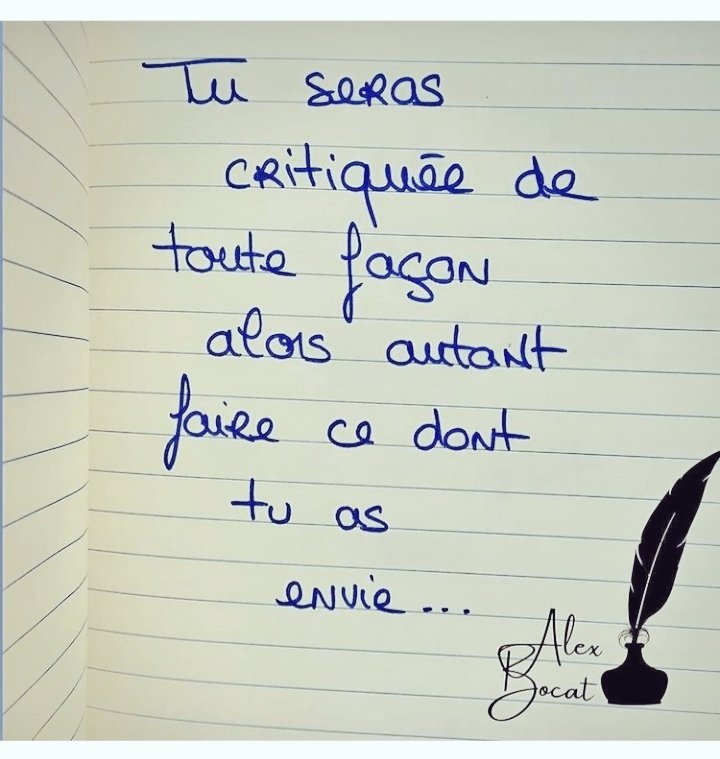 Tu seras
critiquée de
toute façon
alors autant
faire ce dont
tu as
envie...
Alex
Bocat